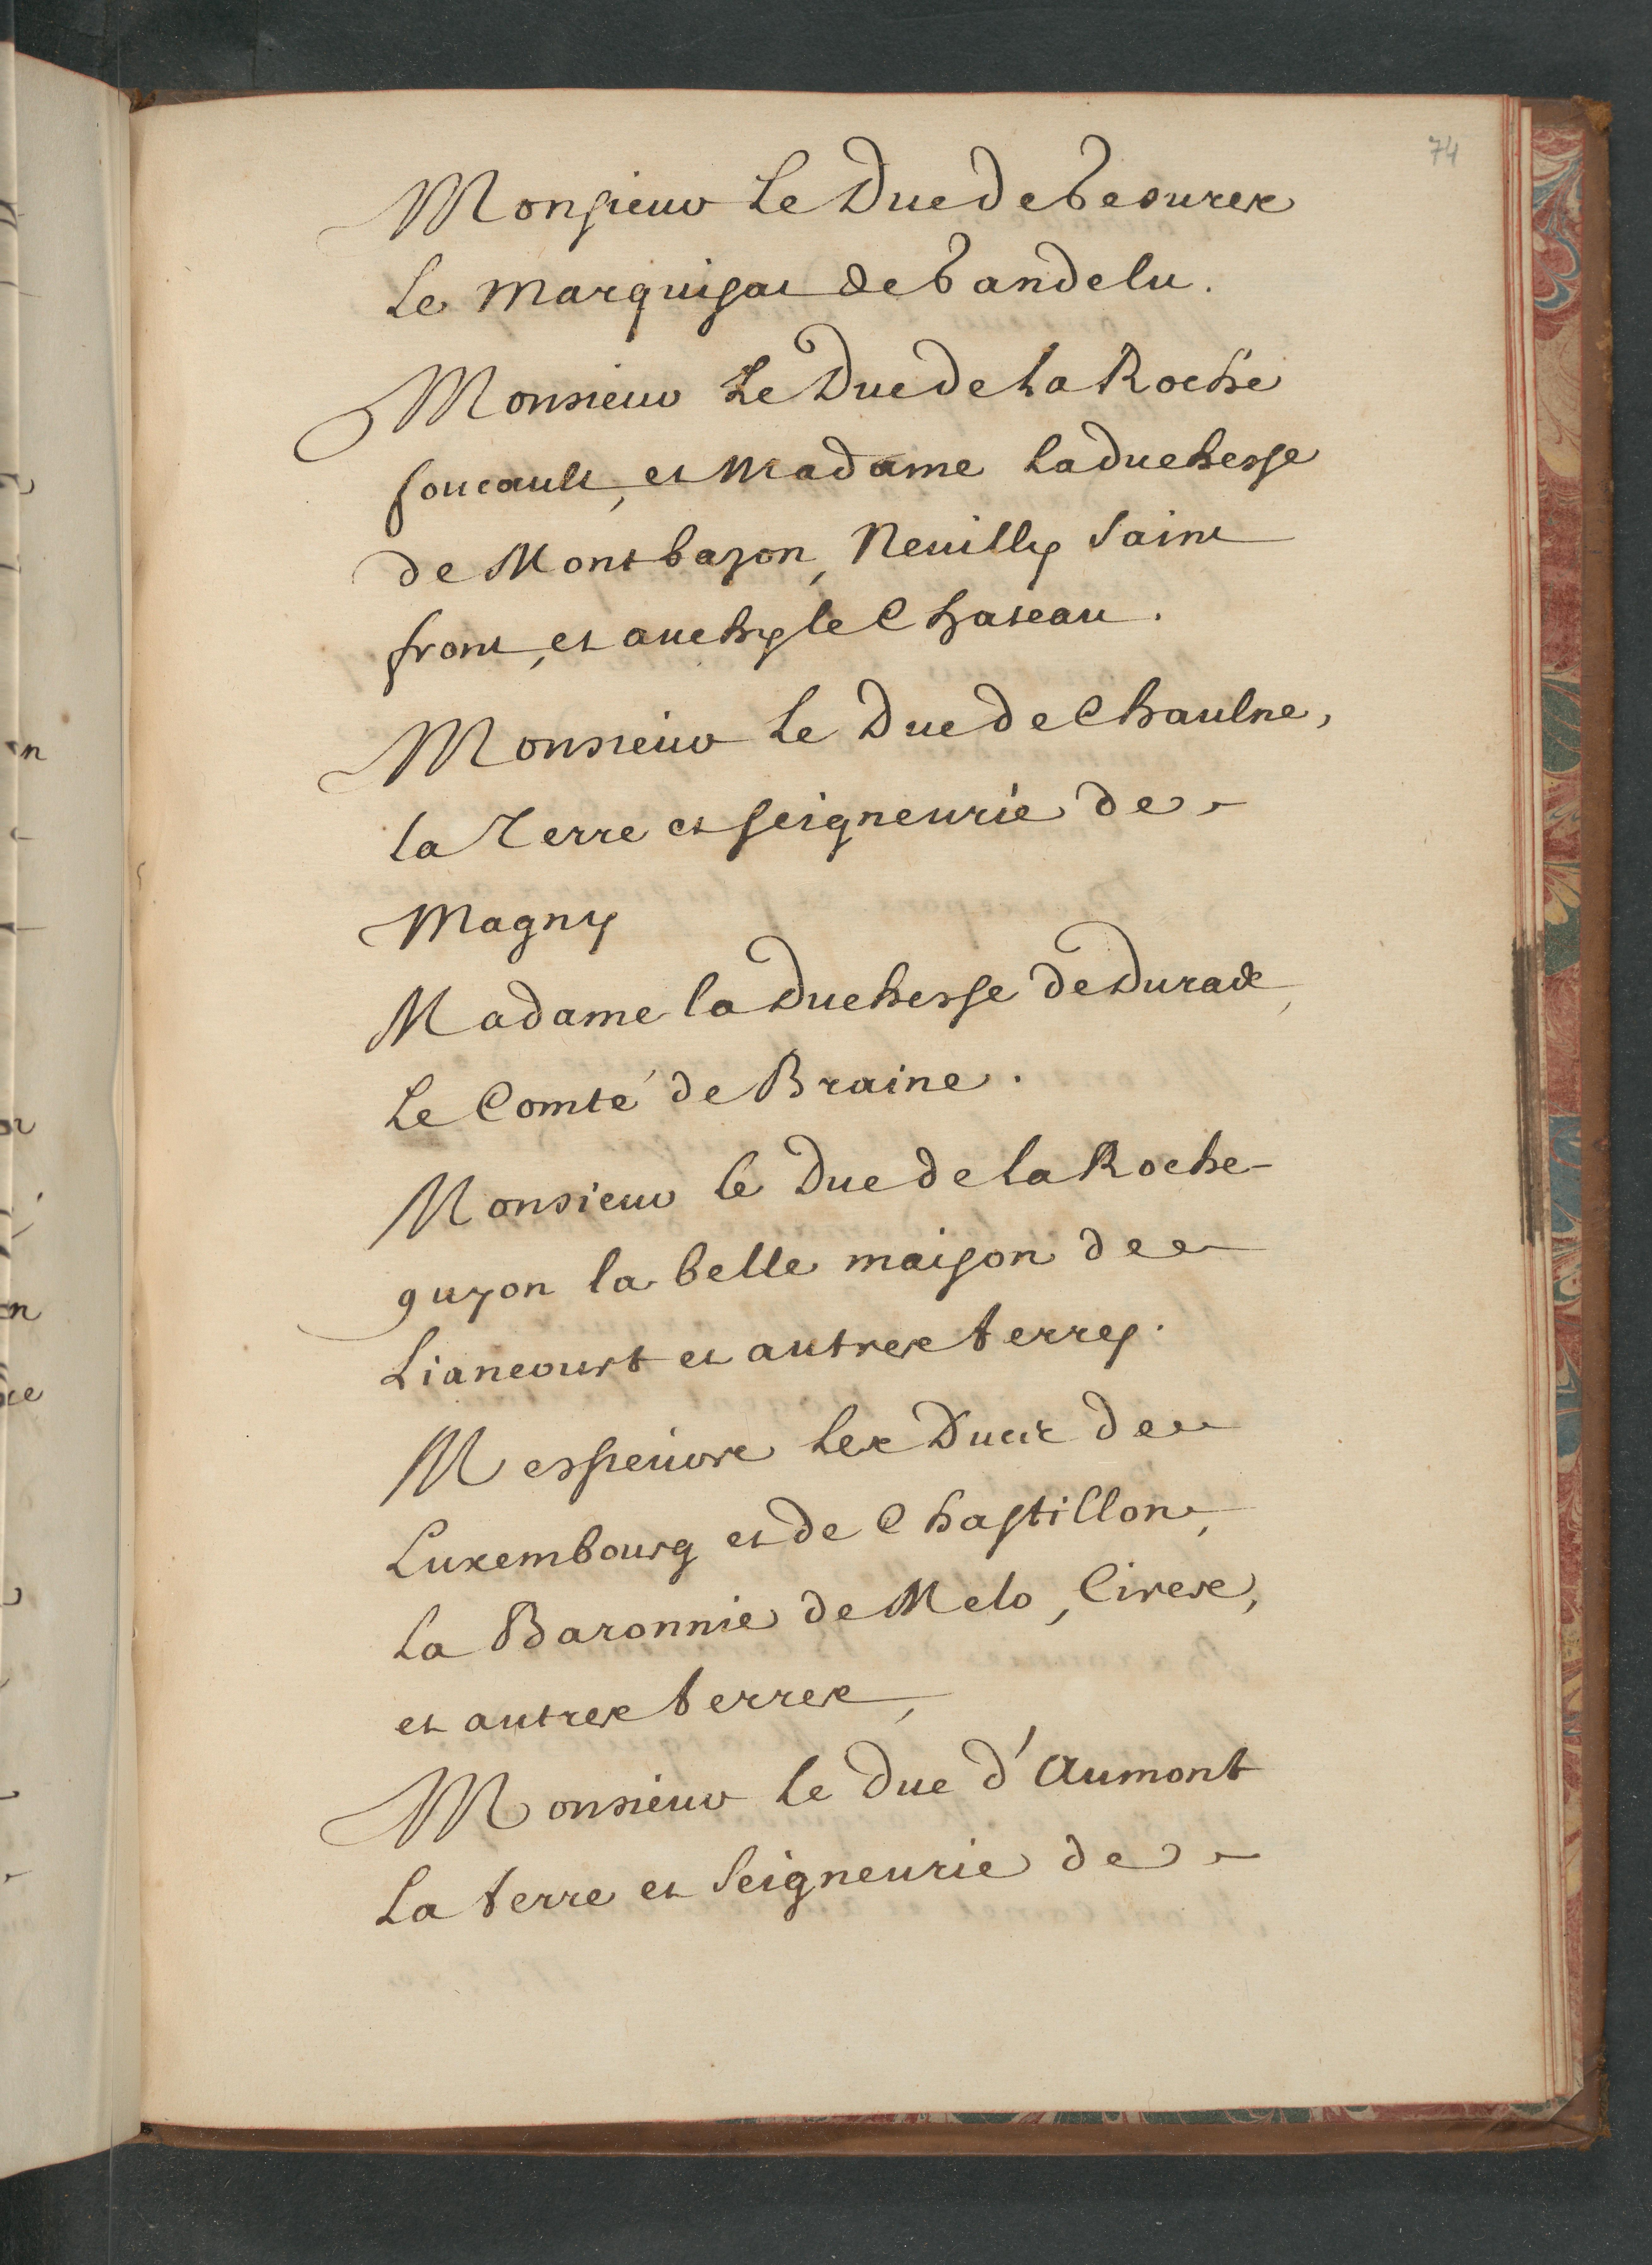 74
Monsieur Le Duc de Gesures
Le Marquisat de Gandelu.
Monsieur Le Duc de La Roche
foucault, et Madame La duchesse
de Montbazon, Neuilly Saint
front, et auchy le Chateau.
Monsieur Le Duc de Chaulne,
la Terre et seigneurie de
Magny
Madame la Duchesse de Duras,
Le Comté de Braine.
Monsieur le Duc de la Roche-
guyon la belle maison de
Liancourt et autres terres.
Messieurs les Ducs de
Luxembourg et de Chastillon,
La Baronnie de Melo, Cires,
et autres terres,
Monsieur le duc d'Aumont
La terre et Seigneurie de